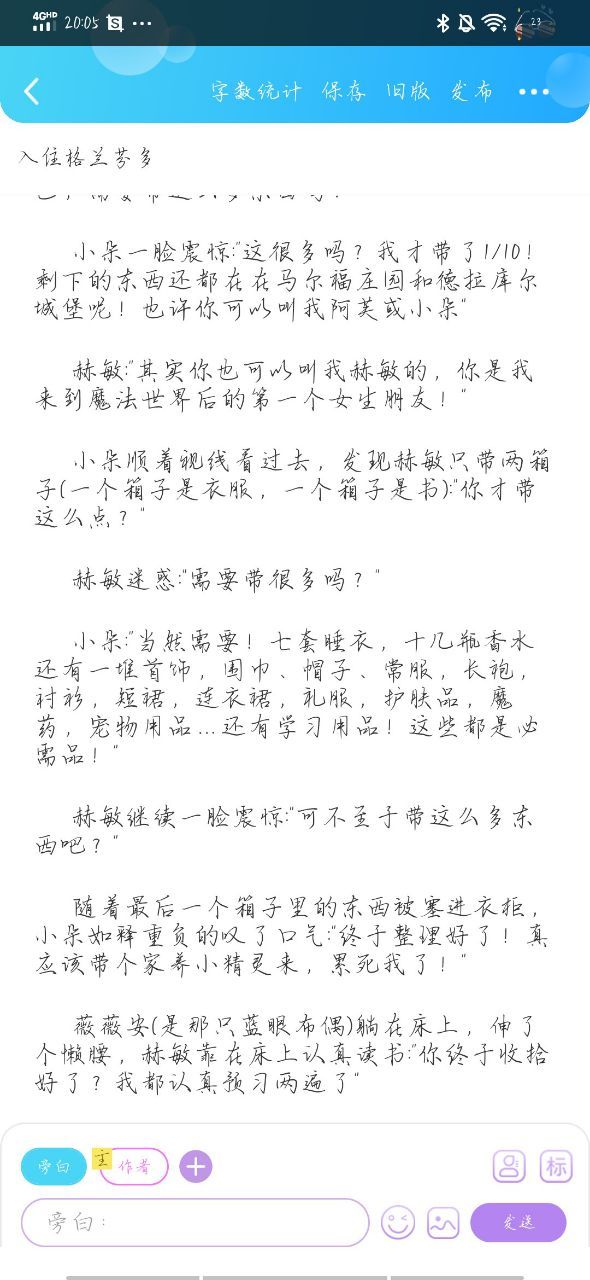 4GHD 20:05 ... 23
字数统计 保存 旧版 发布
入住格兰芬多
小朵一脸震惊:"这很多吗？我才带了1/10！
剩下的东西还都在在马尔福庄园和德拉库尔
城堡呢！也许你可以叫我阿芙或小朵"
赫敏:"其实你也可以叫我赫敏的，你是我
来到魔法世界后的第一个女生朋友！"
小朵顺着视线看过去，发现赫敏只带两箱
子(一个箱子是衣服，一个箱子是书):"你才带
这么点？"
赫敏迷惑:"需要带很多吗？"
小朵:"当然需要！七套睡衣，十几瓶香水
还有一堆首饰，围巾、帽子、常服，长袍，
衬衫，短裙，连衣裙，礼服，护肤品，魔
药，宠物用品...还有学习用品！这些都是必
需品！"
赫敏继续一脸震惊:"可不至于带这么多东
西吧？"
随着最后一个箱子里的东西被塞进衣柜，
小朵如释重负的叹了口气:"终于整理好了！真
应该带个家养小精灵来，累死我了！"
薇薇安(是那只蓝眼布偶)躺在床上，伸了
个懒腰，赫敏靠在床上认真读书:"你终于收拾
好了？我都认真预习两遍了"
旁白 主 作者 标
旁白： 发送